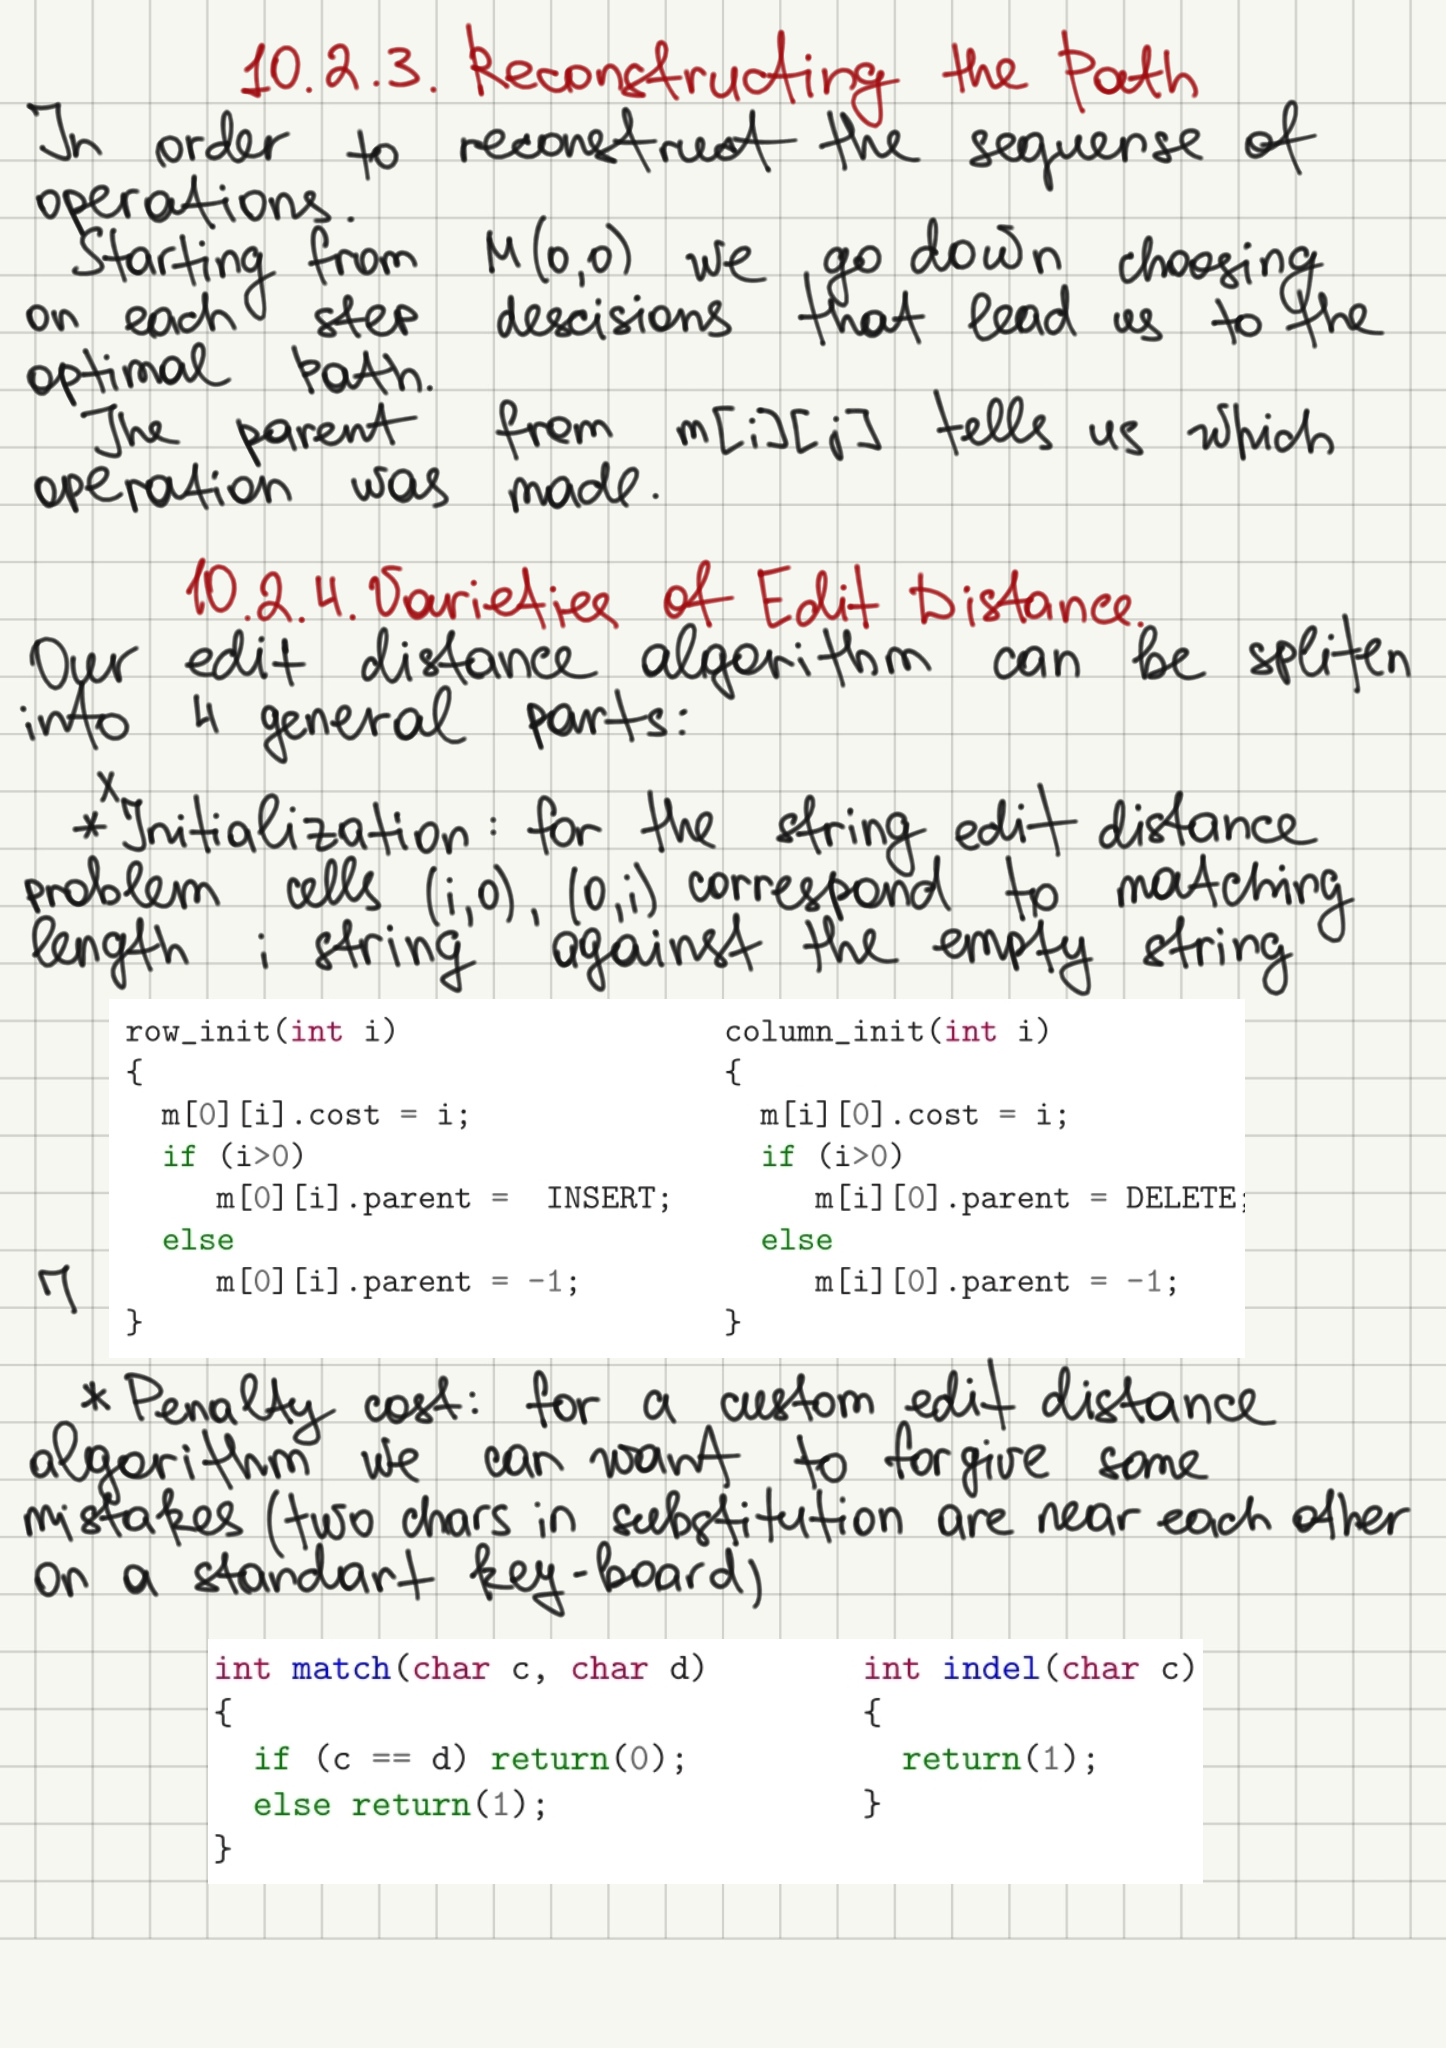 10.2.3. Reconstructing the Path
In order to reconstruct the sequense of
operations.
Starting from M(0,0) we go down choosing
on each step descisions that lead us to the
optimal path.
The parent from m[i][j] tells us which
operation was made.
10.2.4. Varieties of Edit Distance.
Our edit distance algorithm can be spliten
into 4 general parts:
* Initialization: for the string edit distance
problem cells (i,0), (0,i) correspond to matching
length i string against the empty string
row_init(int i)
{
m[0][i].cost = i;
if (i>0)
m[0][i].parent = INSERT;
else
m[0][i].parent = -1;
}
column_init(int i)
{
m[i][0].cost = i;
if (i>0)
m[i][0].parent = DELETE;
else
m[i][0].parent = -1;
}
* Penalty cost: for a custom edit distance
algorithm we can want to forgive some
mistakes (two chars in substitution are near each other
on a standart key-board)
int match(char c, char d)
{
if (c == d) return(0);
else return(1);
}
int indel(char c)
{
return(1);
}